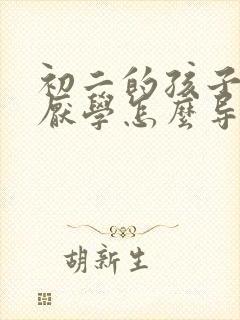 初二的孩子
厭學怎麽导
胡新生